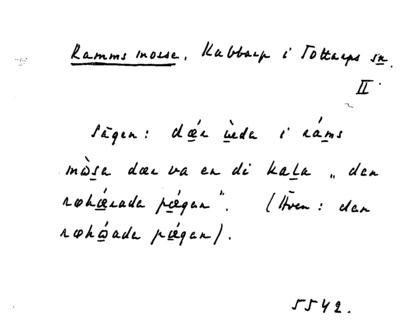 Ramms mosse. Kabbarp i Tottarps sn.
II.
Sägen: dǽr ùeda i ráms
mòsa dær va en di kala „dan
rœhǽrada pǽgan". (Även: dan
rœhǿada pǽgan).
5542.